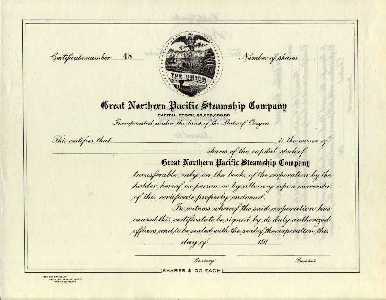 Certificate number 48 Number of shares
THE UNION
Great Northern Pacific Steamship Company
CAPITAL STOCK,
Incorporated under the laws of the State of Oregon
This certifies that is the owner
of shares of the capital stock of
Great Northern Pacific Steamship Company
transferable only on the books of the corporation by the
holder hereof in person or by attorney upon surrender
of this certificate properly endorsed.
In witness whereof the said corporation has
caused this certificate to be signed by its duly authorized
officers, and to be sealed with the seal of the corporation, this
day of 191
Secretary President
SHARES $ EACH